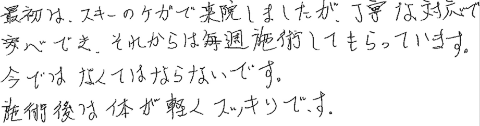 最初は、スキーのケガで来院しましたが、丁寧な対応で
安心でき、それからは毎週施術してもらっています。
今ではなくてはならないです。
施術後は体が軽くスッキリです。